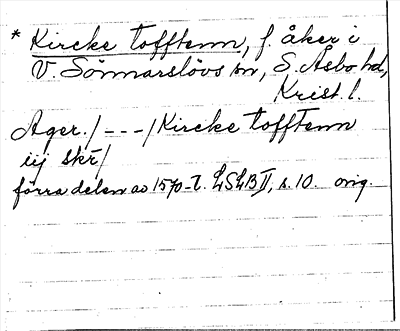 * Kircke tofftenn, f. åker i
V. Sönnarslövs sn, S. Åsbo hd,
Krist. l.
Ager./---/Kircke tofftenn
iij skr̃/
förra delen av 1570-t. LSLB II, s. 10. orig.